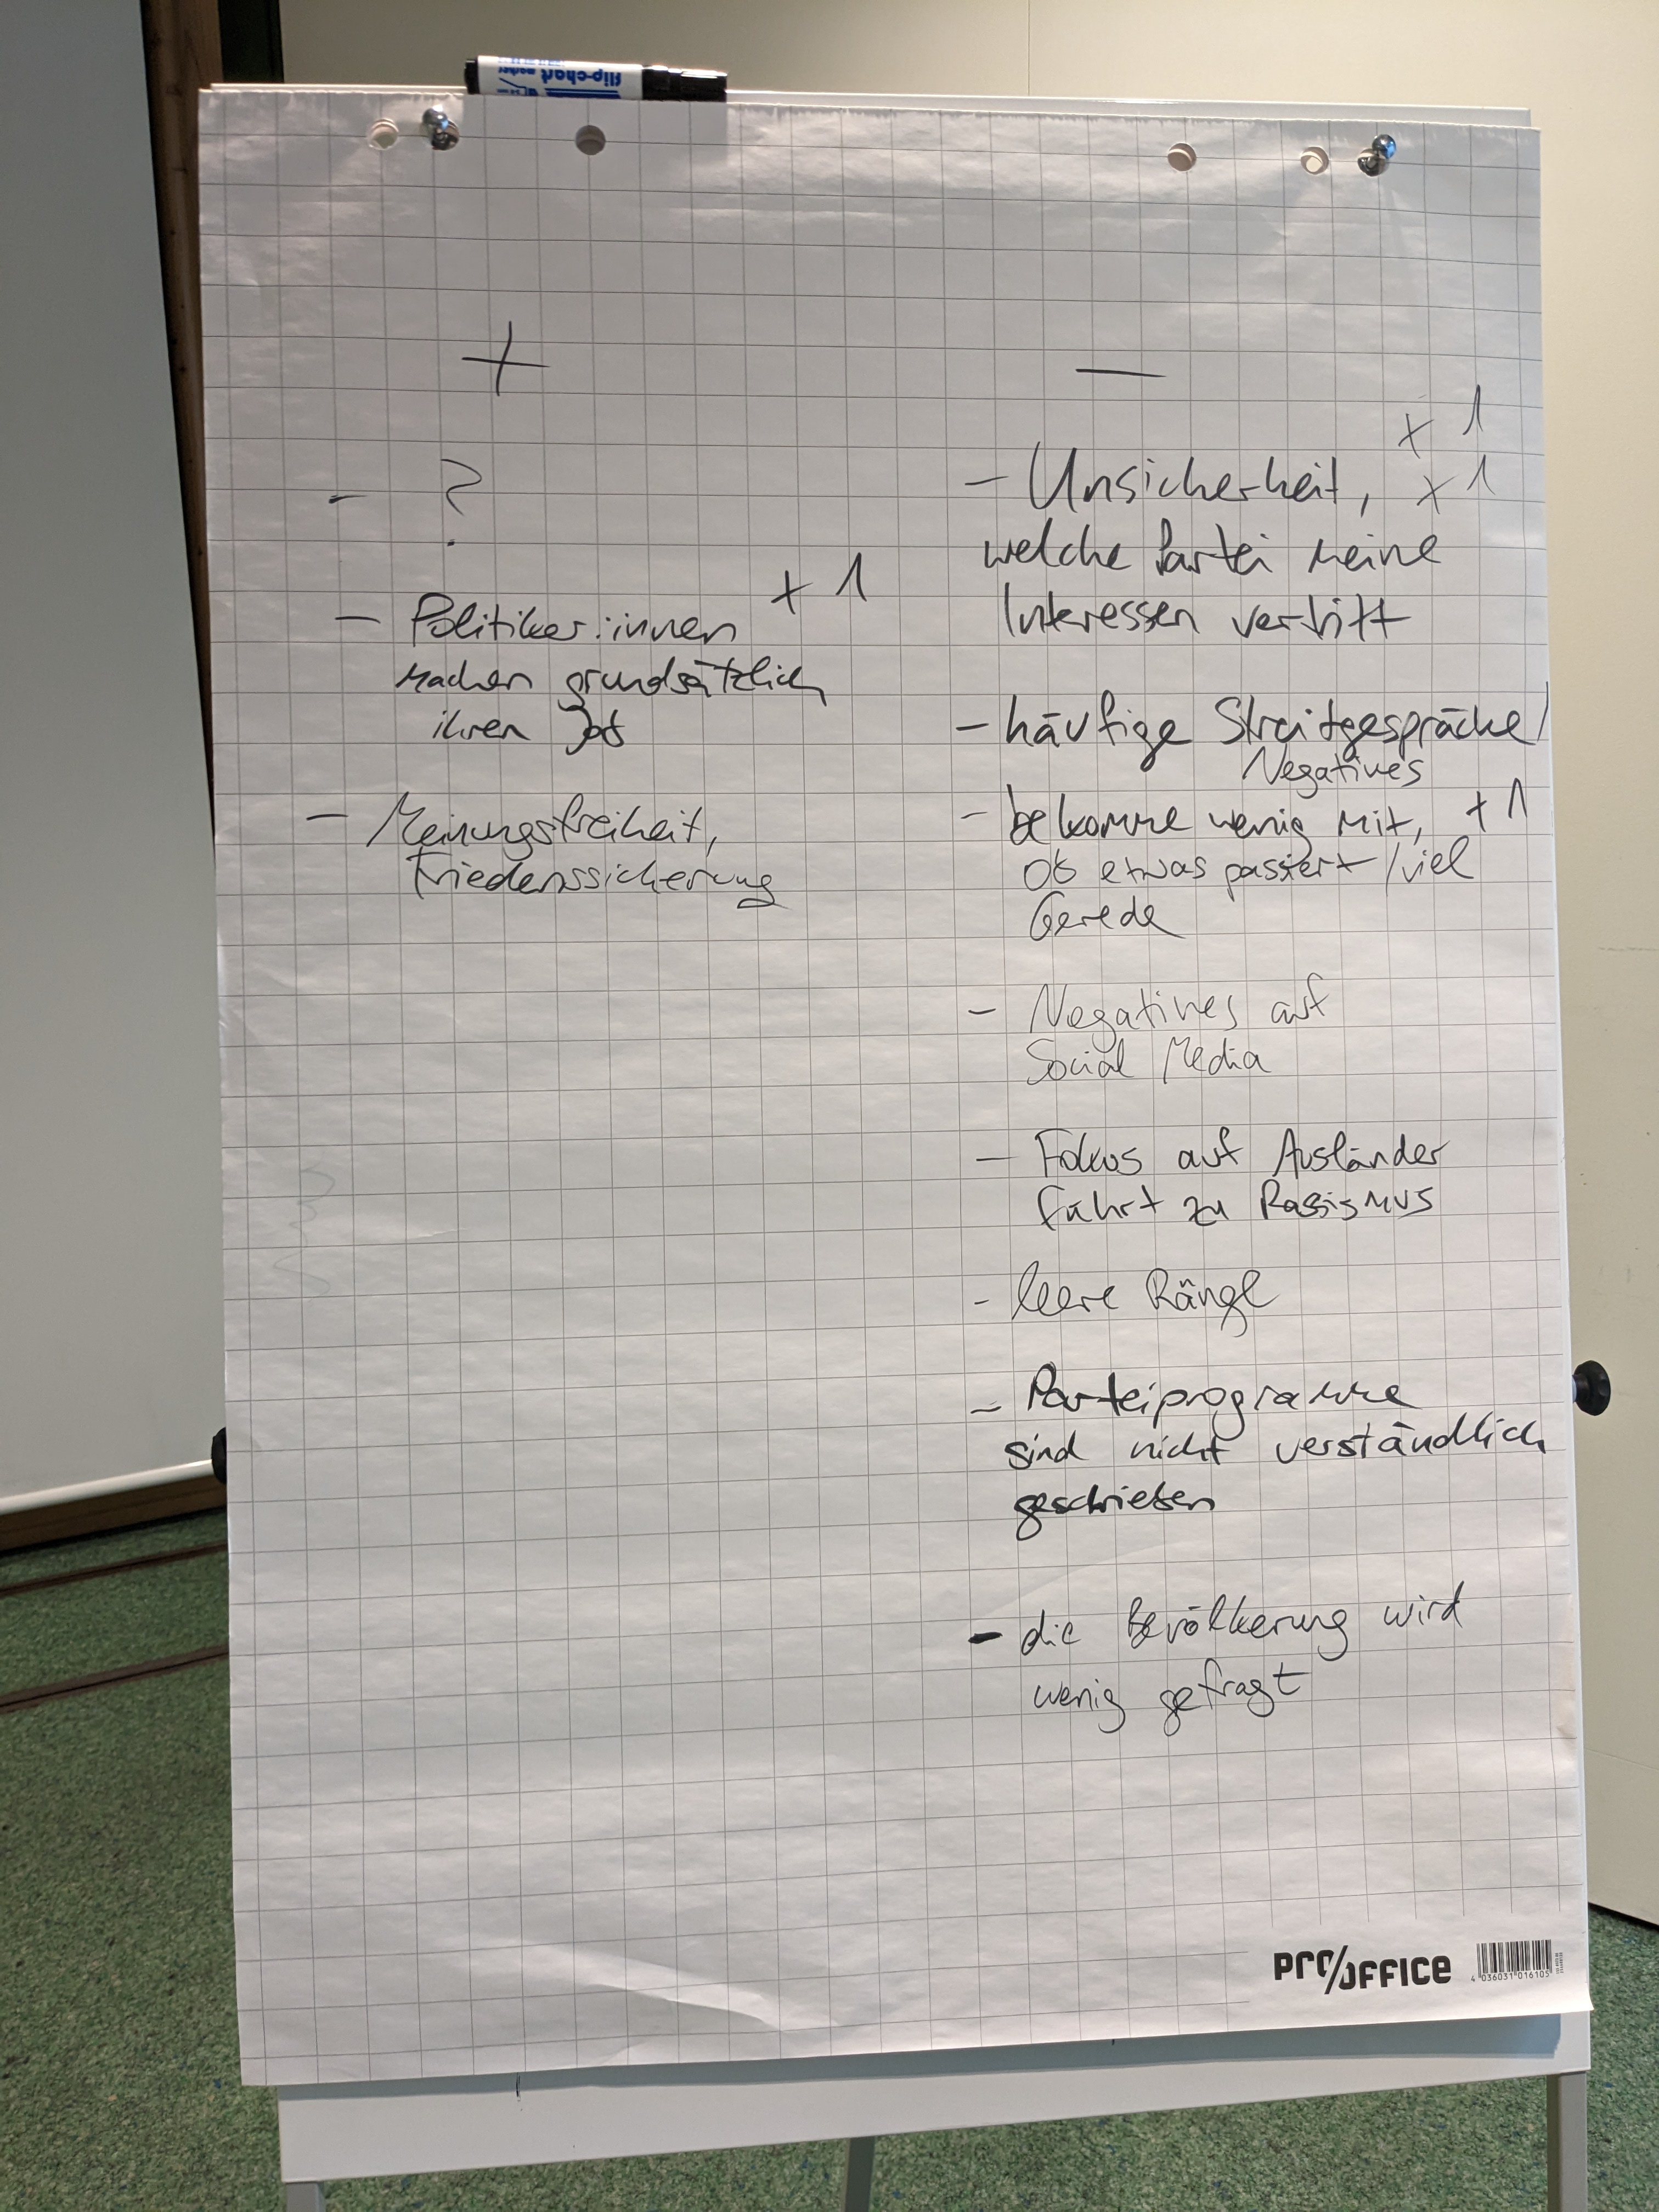 flip-chart
marker
+
- ?
- Politiker:innen +1
machen grundsätzlich
ihren Job
- Meinungsfreiheit,
Friedenssicherung
—
+1
- Unsicherheit, +1
welche Partei meine
Interessen vertritt
- häufige Streitgespräche/
Negatives
- bekomme wenig mit, +1
ob etwas passiert/viel
Gerede
- Negatives auf
Social Media
- Fokus auf Ausländer
führt zu Rassismus
- leere Ränge
- Parteiprogramme
sind nicht verständlich
geschrieben
- die Bevölkerung wird
wenig gefragt
PRO/OFFICE
4 036031 016105